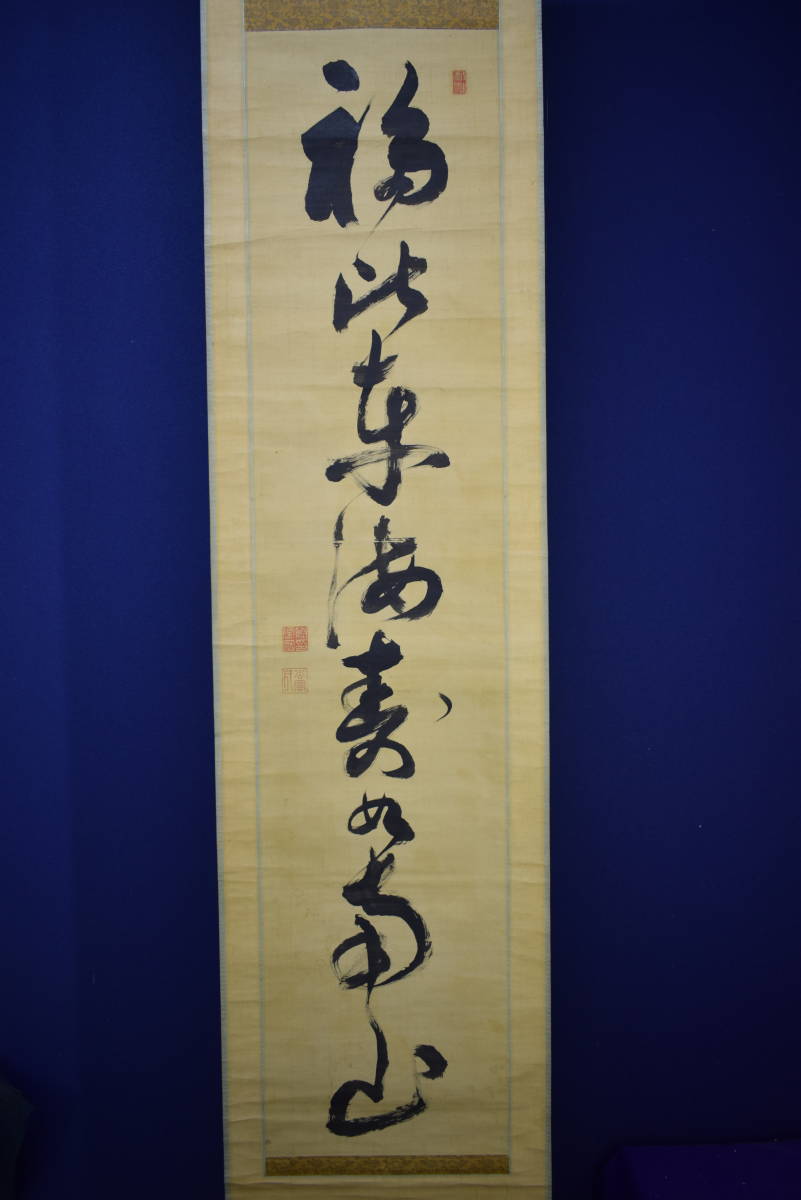 福比東海壽如南山